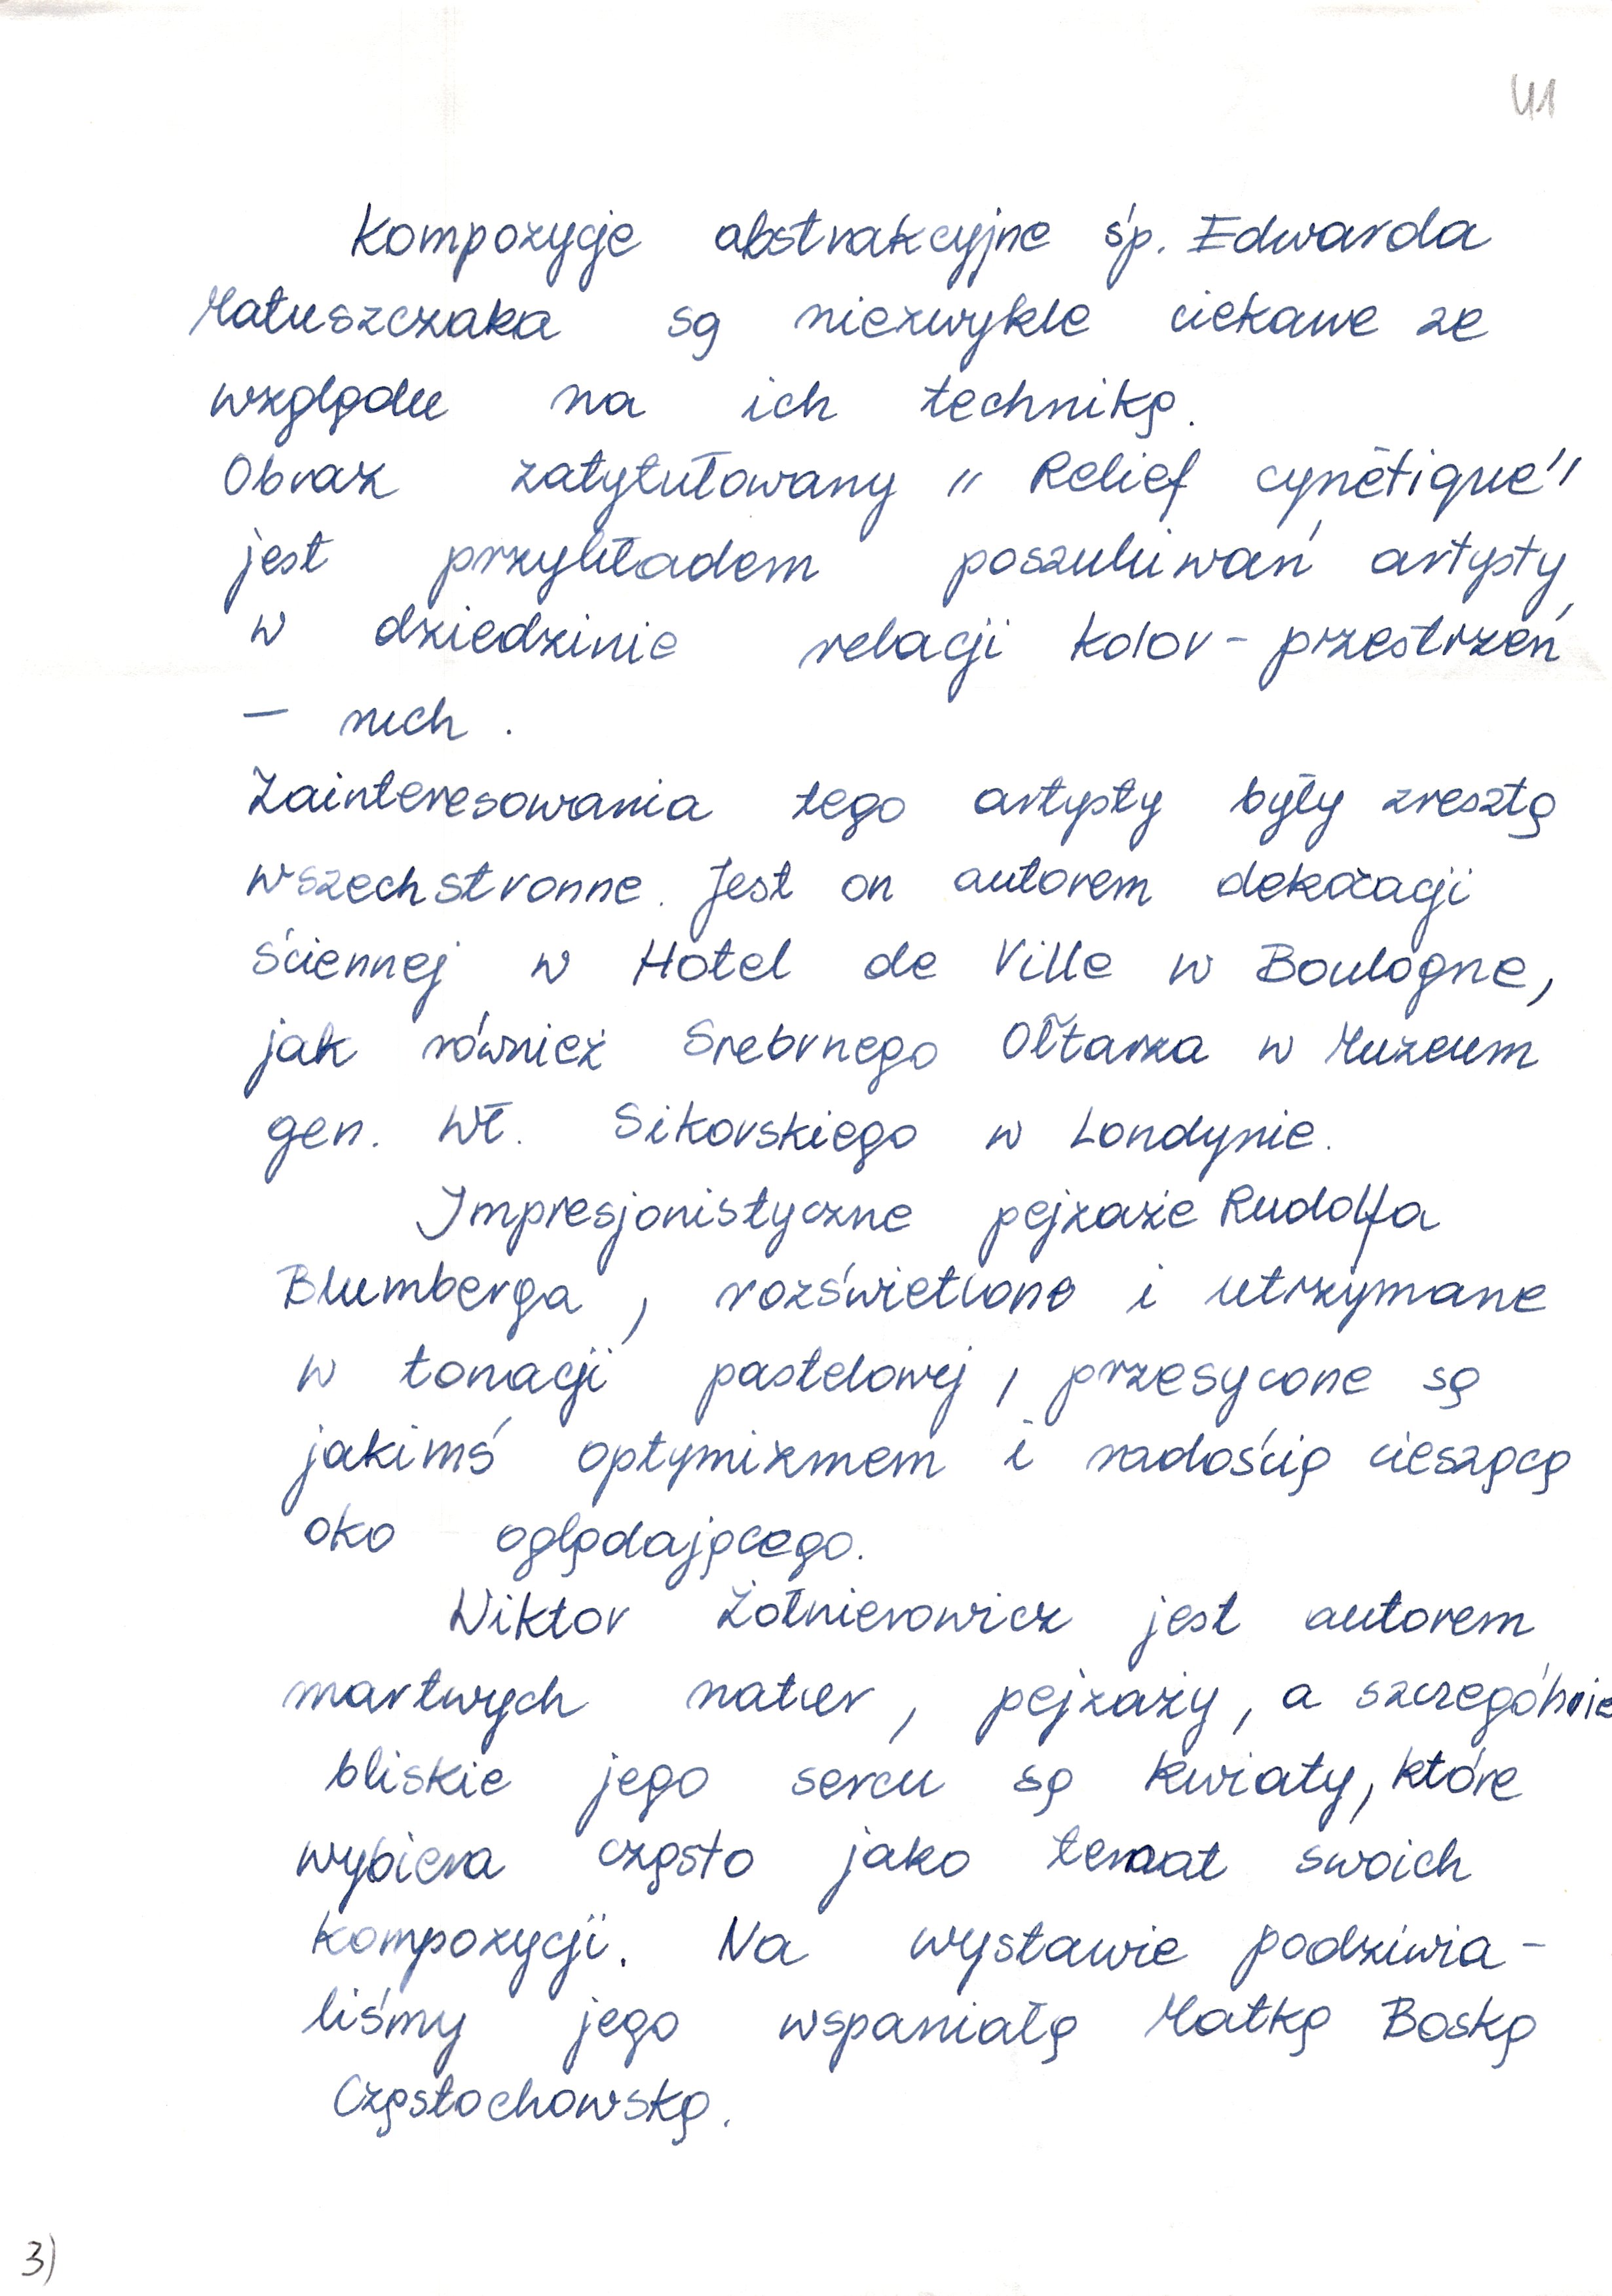 41
Kompozycje abstrakcyjne śp. Edwarda
Matuszczaka są niezwykle ciekawe ze
względu na ich technikę.
Obraz zatytułowany "Relief cynétique"
jest przykładem poszukiwań artysty
w dziedzinie relacji kolor - przestrzeń
- ruch.
Zainteresowania tego artysty były zresztą
wszechstronne. Jest on autorem dekoracji
ściennej w Hotel de Ville w Boulogne,
jak również Srebrnego Ołtarza w Muzeum
gen. Wł. Sikorskiego w Londynie.
Impresjonistyczne pejzaże Rudolfa
Blumberga, rozświetlone i utrzymane
w tonacji pastelowej, przesycone są
jakimś optymizmem i radością cieszącą
oko oglądającego.
Wiktor Żołnierowicz jest autorem
martwych natur, pejzaży, a szczególnie
bliskie jego sercu są kwiaty, które
wybiera często jako temat swoich
kompozycji. Na wystawie podziwia-
liśmy jego wspaniałą Matkę Boską
Częstochowską.
3)